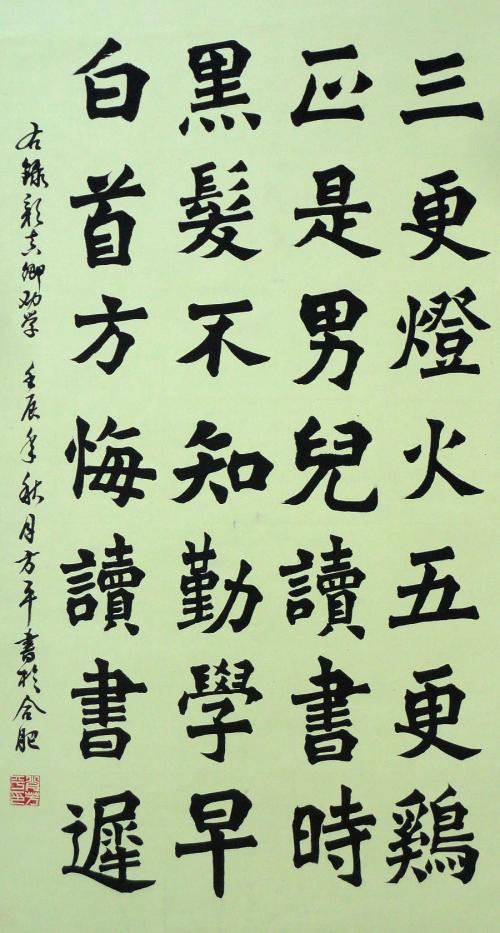 三更燈火五更鷄
正是男兒讀書時
黑髮不知勤學早
白首方悔讀書遲
右錄顏真卿劝学 壬辰年秋月方平書於合肥